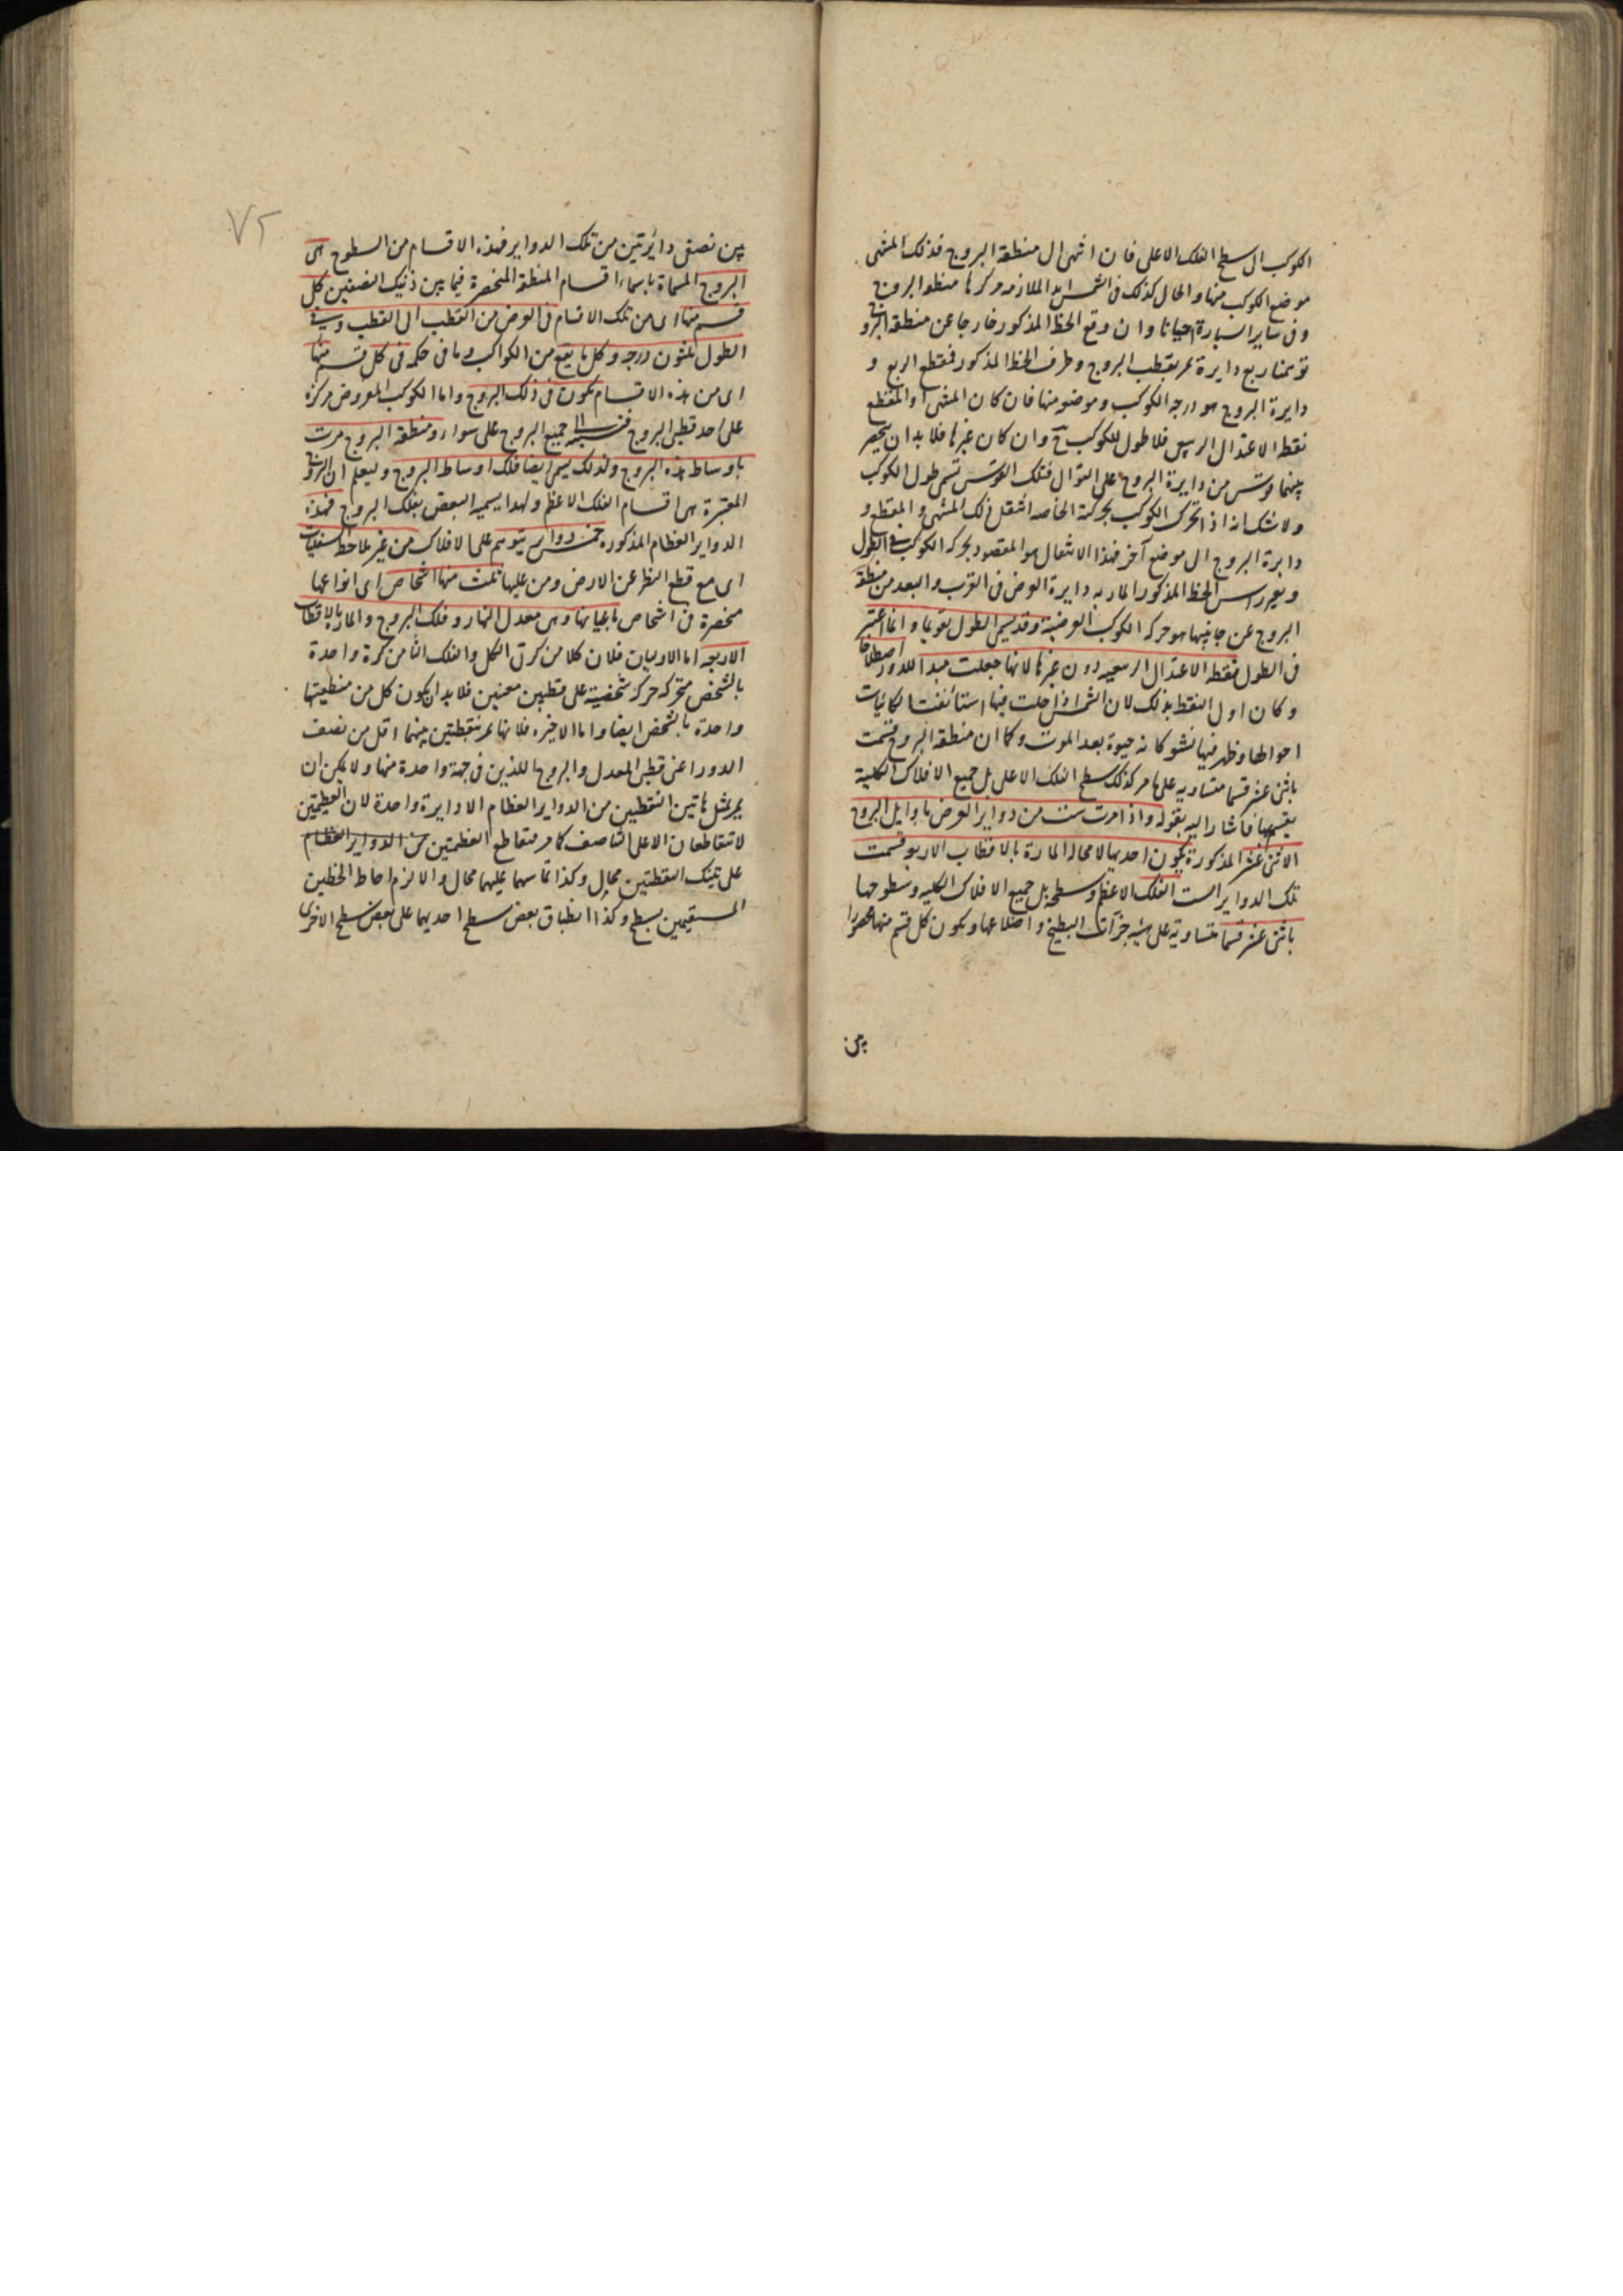 الكوكب الى سطح الفلك الاعلى فان انتهى الى منطقة البروج فذلك المنتهى
موضع الكوكب منها والحال كذلك فى الشمس ابدا لملازمة مركزها منطقة البروج
وفى ساير السيارة احيانا وان وقع الخط المذكور خارجا عن منطقة البروج
توهمنا ربع دايرة تمر بقطب البروج وطرف الخط المذكور فمقطع الربع و
دايرة البروج هو درجة الكوكب وموضعه منها فان كان المنتهى او المقطع
نقطة الاعتدال الربيعى فلا طول للكوكب ح وان كان غيرها فلا بد ان ينحصر
بينهما قوس من دايرة البروج على التوالى فتلك القوس تسمى طول الكوكب
ولا شك انه اذا تحرك الكوكب بحركته الخاصة انتقل ذلك المنتهى والمقطع و
دايرة البروج الى موضع آخر فهذا الانتقال هو المقصود بحركة الكوكب فى الطول
وبعد راس الخط المذكور المار به دايرة العرض فى القرب والبعد من منطقة
البروج عن جانبيها هو حركة الكوكب العرضية وقد يسمى الطول تقويما وانما اعتبر
فى الطول نقطة الاعتدال الربيعى دون غيرها لانها جعلت مبدا للدور اصطلاحا
وكان اولى النقط بذلك لان الشمس اذا حلت فيها استأنفت الكائنات
احوالها وظهر فيها نشو كانه حيوة بعد الموت وكما ان منطقة البروج قسمت
باثنى عشر قسما متساوية على ما مر كذلك سطح الفلك الاعلى بل جميع الافلاك الكلية
بقسميها فاشار اليه بقوله واذا مرت ست من دواير العرض باوايل البروج
الاثنى عشر المذكورة يكون احديها لا محالة المارة بالاقطاب الاربعة قسمت
تلك الدواير الست الفلك الاعظم وسطحه بل جميع الافلاك الكلية وسطوحها
باثنى عشر قسما متساوية على هيئة جزآت البطيخ واضلاعها ويكون كل قسم منها محصورا
بين
٧٢
بين نصفى دائرتين من تلك الدواير فهذه الاقسام من السطوح هى
البروج المسماة باسماء اقسام المنطقة المنحصرة فيما بين ذينك النصفين كل
قسم منها اى من تلك الاقسام فى العرض من القطب الى القطب وفى
الطول ثلثون درجة وكل ما يقع من الكواكب وما فى حكمه فى كل قسم منها
اى من هذه الاقسام يكون فى ذلك البروج واما الكوكب المفروض مركزه
على احد قطبى البروج فنسبته الى جميع البروج على سواء ومنطقة البروج مرت
باوساط هذه البروج ولذلك يسمى ايضا فلك اوساط البروج وليعلم ان البروج
المعتبرة هى اقسام الفلك الاعظم ولهذا يسميه البعض بفلك البروج فهذه
الدواير العظام المذكورة خمس دواير يتوهم على الافلاك من غير ملاحظة السفليات
اى مع قطع النظر عن الارض ومن عليها ثلث منها اشخاص اى انواعها
منحصرة فى اشخاص باعيانها وهى معدل النهار وفلك البروج والمارة بالاقطاب
الاربعة اما الاوليان فلان كلا من كرتى الكل والفلك الثامن كرة واحدة
بالشخص متحركة حركة شخصية على قطبين معينين فلا بد ان يكون كل من منطقتيها
واحدة بالشخص ايضا واما الاخيرة فلانها تمر بنقطتين بينهما اقل من نصف
الدور اعنى قطبى المعدل والبروج اللذين فى جهة واحدة منها ولا يمكن ان
يمر بمثل هاتين النقطتين من الدواير العظام الا دايرة واحدة لان العظيمتين
لا تتقاطعان الا على التناصف كما مر فتقاطع العظمتين من الدواير العظام
على تينك النقطتين محال وكذا تماسهما عليهما محال والا لزم احاطة الخطين
المستقيمين بسطح وكذا انطباق بعض سطح احديهما على بعض سطح الاخرى